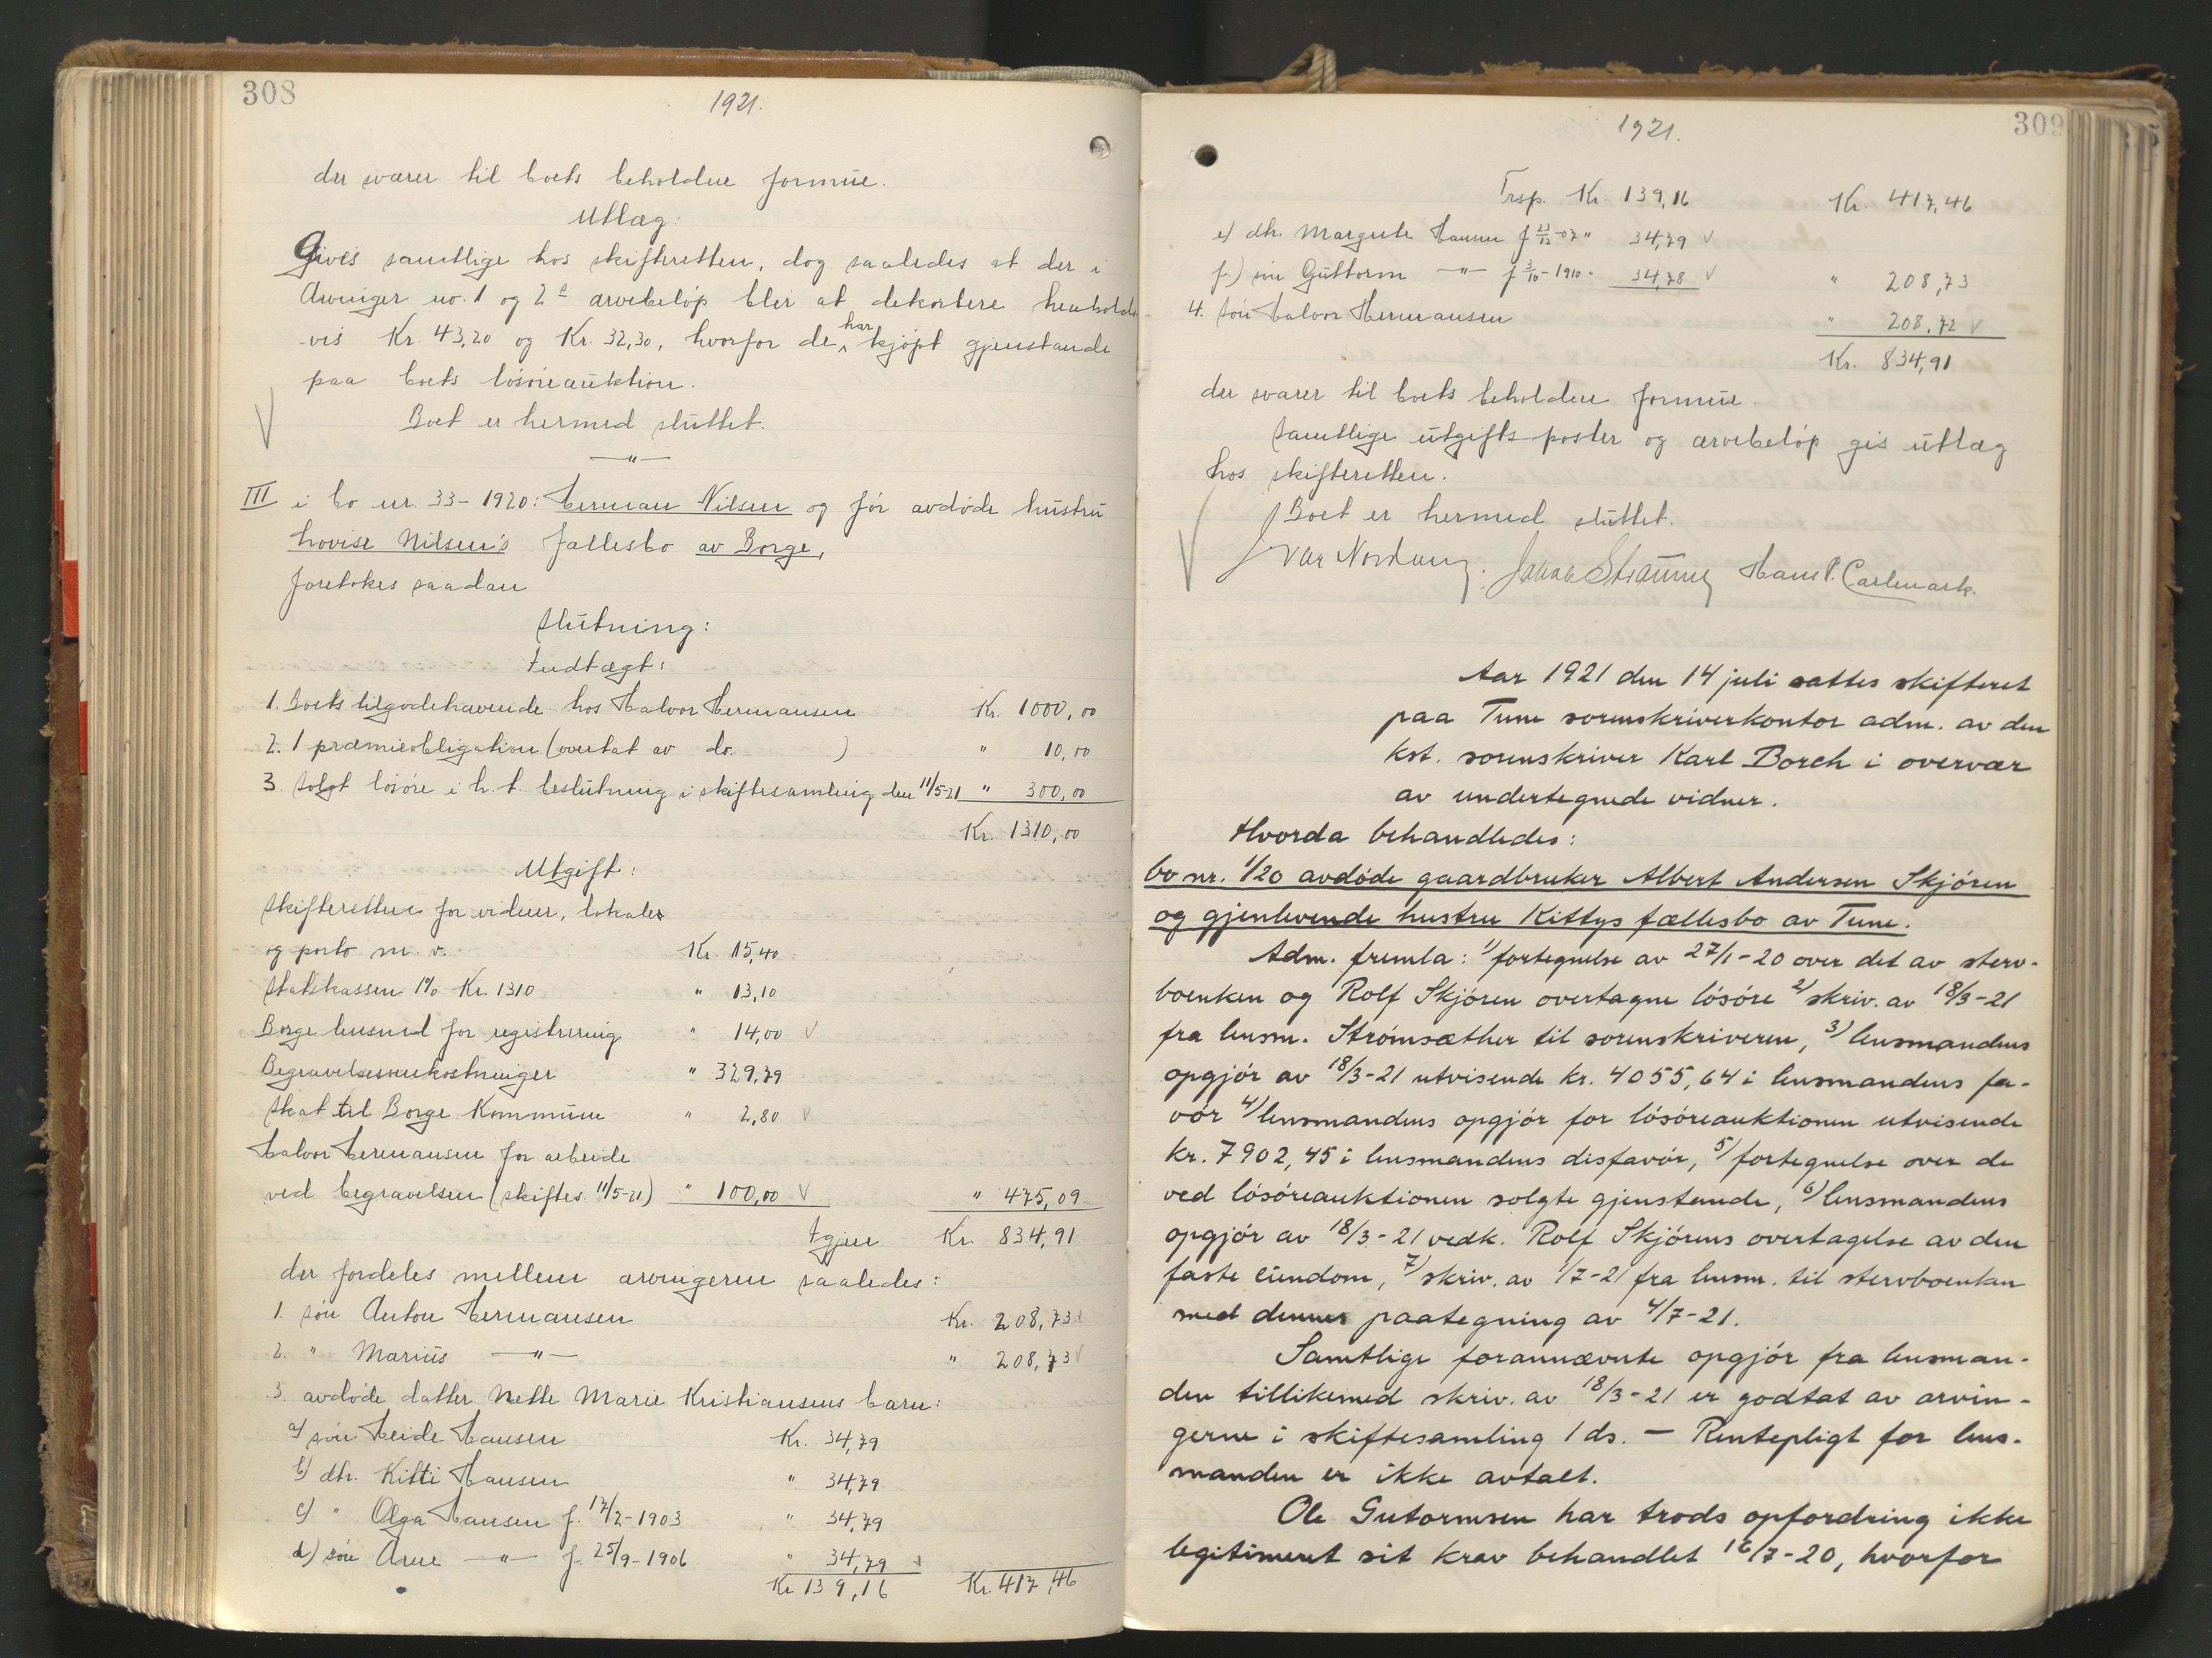 308
1921.
der svarer til boets beholdne formue.
Utlæg:
Gives samtlige hos skifteretten, dog saaledes at der i
Arvinger no. 1 og 2s arvebeløp blir at dekortere henholds
vis Kr. 43,20 og Kr. 32,30, hvorfor de har kjøpt gjenstande
paa boets løsøreauktion.
Boet er hermed sluttet.
—"—
III i bo nr. 33-1920: Herman Nilsen og før avdøde hustru
Lovise Nilsen's fællesbo av Borge,
foretokes saadan
Slutning:
Indtægt:
1. Boets tilgodehavende hos Halvor Hermansen Kr. 1000,00
2. 1 præmieobligation (overtat av do. ) " 10,00
3. Solgt løsøre i h. t. beslutning i skiftesamling den 11/5-21 " 300,00
Kr. 1310,00
Utgift:
Skifteretten for vidner, lokaler
og porto m. v. Kr. 15,40
Statskassen 1% Kr. 1310 " 13,10
Borge lensmd for registrering " 14,00 V
Begravelsesomkostninger " 329,79
Skat til Borge Kommune " 2,80 V
Halvor Hermansen for arbeide
ved begravelsen (skiftes. 11/5-21) " 100,00 V " 475,09
Igjen Kr. 834,91
der fordeles mellem arvingerne saaledes:
1. søn Anton Hermansen Kr. 208,73 V
2. " Marius —"— " 208,73 V
3. avdøde datter Nette Marie Kristiansens barn:
a) søn Heide Hansen Kr. 34,79
b) dtr. Kitti Hansen " 34,79
c) " Olga Hansen f. 17/2-1903 " 34,79
d) søn Arne —"— f. 25/9-1906 " 34,79 V
Kr 139,16 Kr. 417,46
309
1921.
Trsp. Kr. 139,16 Kr. 417,46
e) dtr. Margrete Hansen f 23/12-07 " 34,79 V
f.) søn Guttorm —"— f 3/10-1910 " 34,78 V " 208,73
4. søn Halvor Hermansen " 208,72 V
Kr. 834,91
der svarer til boets beholdne formue.
Samtlige utgifts-poster og arvebeløp gis utlæg
hos skifteretten.
Boet er hermed sluttet.
Ivar Hans P. Carlmark.
Aar 1921 den 14 juli sattes skifteret
paa Tune sorenskriverkontor adm. av den
kst. sorenskriver Karl Borch i overvær
av undertegnede vidner.
Hvorda behandledes:
bo nr. 1/20 avdøde gaardbruker Albert Andersen Skjøren
og gjenlevende hustru Kittys fællesbo av Tune.
Adm. fremla: 1) fortegnelse av 27/1-20 over det av sterv-
boenken og Rolf Skjøren overtagne løsøre 2) skriv. av 18/3-21
fra lensm. Strømsæther til sorenskriveren, 3) lensmandens
opgjør av 18/3-21 utvisende kr. 4055,64 i lensmandens fa-
vør 4) lensmandens opgjør for løsøreauktionen utvisende
kr. 7902,45 i lensmandens disfavør, 5) fortegnelse over de
ved løsøreauktionen solgte gjenstande, 6) lensmandens
opgjør av 18/3-21 vedk. Rolf Skjørens overtagelse av den
faste eiendom, 7) skriv. av 1/7-21 fra lensm. til stervboenken
med dennes paategning av 4/7-21.
Samtlige forannævnte opgjør fra lensman-
den tillikemed skriv. av 18/3-21 er godtat av arvin-
gerne i skiftesamling 1 ds. — Rentepligt for lens-
manden er ikke avtalt.
Ole Gutormsen har trods opfordring ikke
legitimeret sit krav behandlet 16/7-20, hvorfor